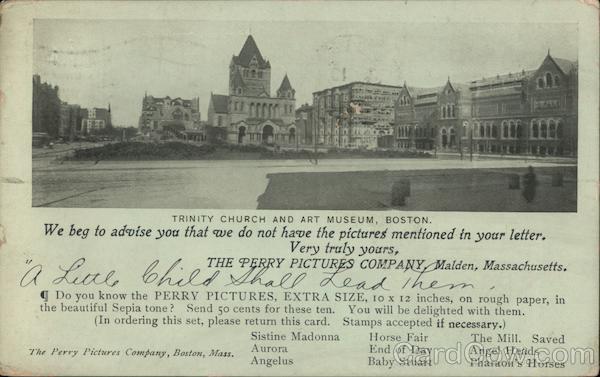 TRINITY CHURCH AND ART MUSEUM, BOSTON.
We beg to advise you that we do not have the pictures mentioned in your letter.
Very truly yours,
THE PERRY PICTURES COMPANY, Malden, Massachusetts.
"A Little Child Shall Lead Them.
¶ Do you know the PERRY PICTURES, EXTRA SIZE, 10 x 12 inches, on rough paper, in
the beautiful Sepia tone? Send 50 cents for these ten. You will be delighted with them.
(In ordering this set, please return this card. Stamps accepted if necessary.)
Sistine Madonna Horse Fair The Mill. Saved
Aurora End of Day Angel Heads
Angelus Baby Stuart Pharaoh's Horses
The Perry Pictures Company, Boston, Mass.
CardCow.com